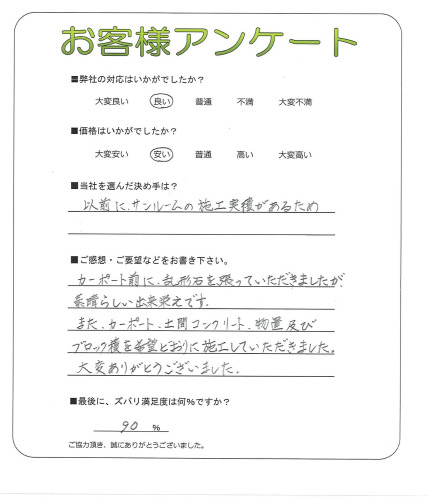 お客様アンケート
■弊社の対応はいかがでしたか?
大変良い 良い 普通 不満 大変不満
■価格はいかがでしたか?
大変安い 安い 普通 高い 大変高い
■当社を選んだ決め手は?
以前に、サンルームの施工実積があるため
■ご感想・ご要望などをお書き下さい。
カーポート前に、乱形石を張っていただきましたが
素晴らしい出来栄えです。
また、カーポート、土間コンクリート、物置及び
ブロック積を希望どおりに施工していただきました。
大変ありがとうございました。
■最後に、ズバリ満足度は何%ですか?
90 %
ご協力頂き、誠にありがとうございました。